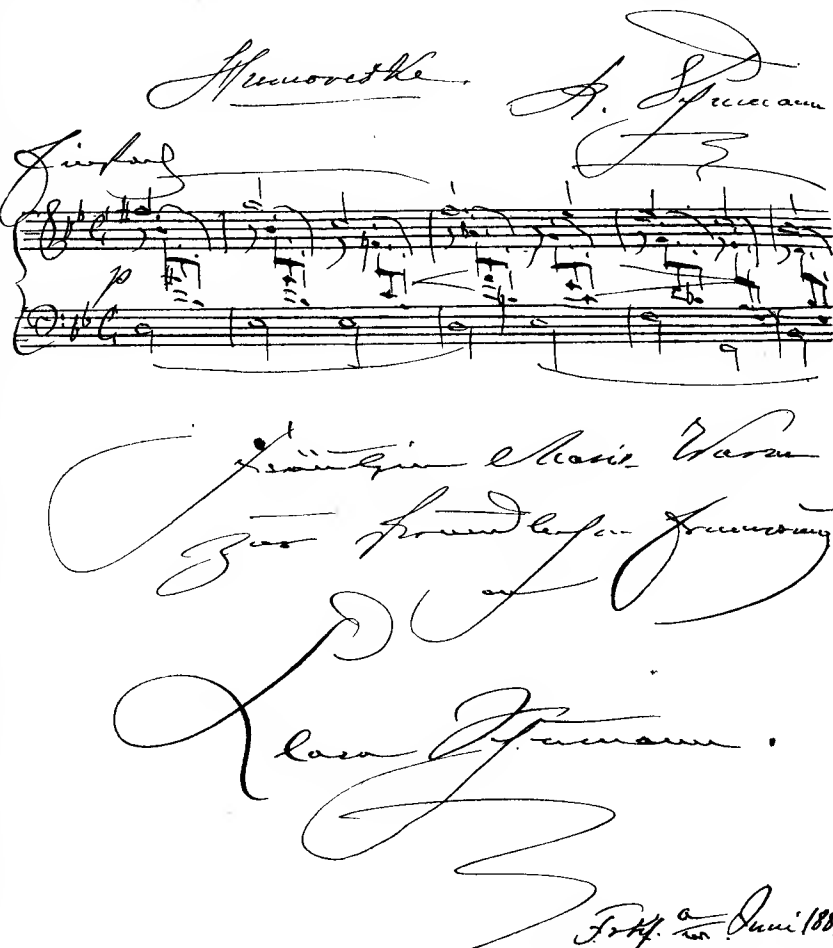 Humoreske. R. Schumann
Einfach
p
Fräulein Marie Wurm
Zur freundlichen Erinnerung
an
Clara Schumann.
Frkf. a/m. Juni 188